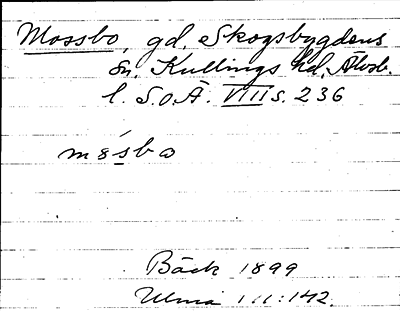 Mossbo, gd, Skogsbygdens
sn. Kullings hd. Älvsb.
l. S.o.Ä. VIII s. 236
mosbo
Bäck 1899
Ulma 111:142.